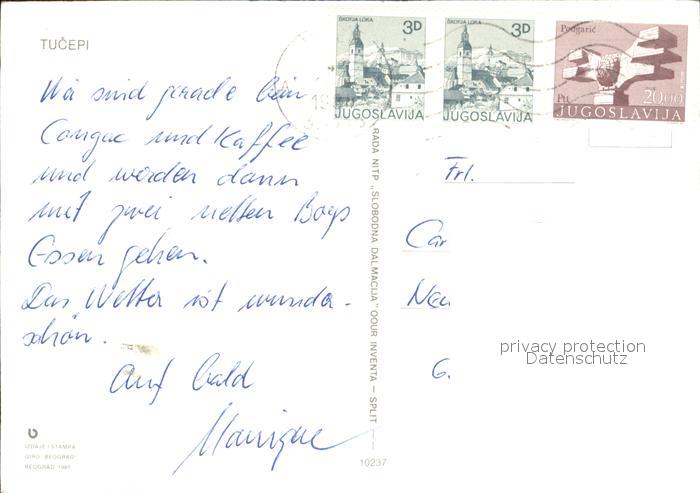 TUČEPI
Wir sind gerade beim
Congac und Kaffee
und werden dann
mit zwei netten Boys
Essen gehen.
Das Wetter ist wunder-
schön.
Auf bald
Monique
IZDAJE I ŠTAMPA
GIRO "BEOGRAD"
BEOGRAD 1981
RADA NITP „SLOBODNA DALMACIJA" OOUR INVENTA — SPLIT
10237
ŠKOFJA LOKA
3D
JUGOSLAVIJA
ŠKOFJA LOKA
3D
JUGOSLAVIJA
Podgarić
Ptt
20.00
JUGOSLAVIJA
Frl.
Car
Neu
6.
privacy protection
Datenschutz